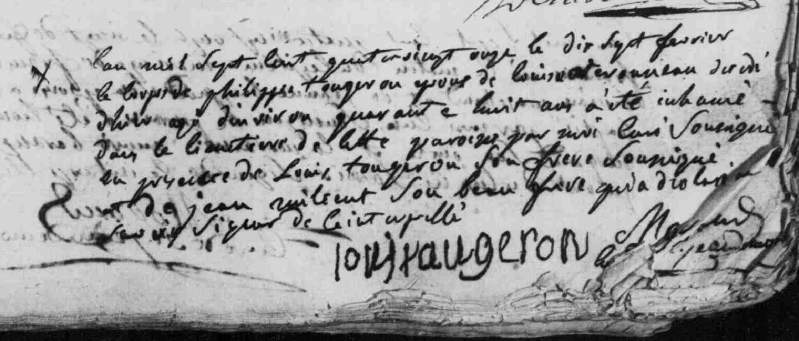 Lan mil Sept Cent quatervingt onze le dix Sept fevrier
le Corps de philippe tougeron epous de louise decedé
dhier agé dinviron quarante huit ans a été inhumé
dans le Cimetiere de Cette paroisse par moi Curé Soussigné
en presence de Louis tougeron Son frere Soussigné
et de jean milcent Son beau frere qui a declaré ne
Savoir Signer de Ce interpellé
louis taugeron